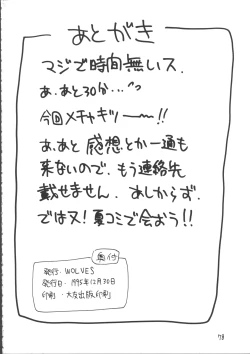 あとがき
マジで時間無いス.
あ.あと30分…
今回メチャキツー!!
あ.あと感想とか一通も
来ないので.もう連絡先
載せません.あしからず.
では又!夏コミで会おう!!
奥付
発行・WOLVES
発行日・1995年12月30日
印刷・大友出版印刷
78